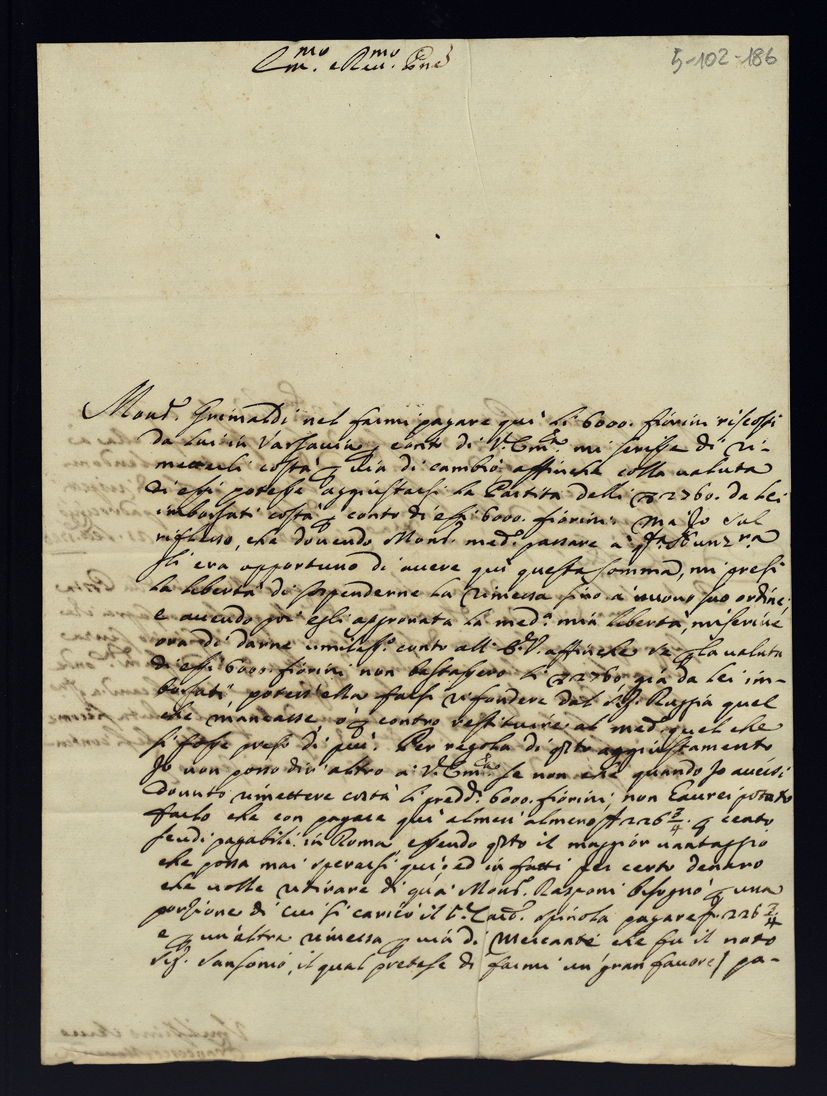 5-102-186
Em.mo e Rev.mo P̃ne
Mons.r Grimaldi nel farmi pagare quì li 6000. fiorini riscossi
da lui in Varsavia p conto di V. Em.za mi scrisse di ri-
metterli costà p via di cambio affinche colla valuta
di essi potesse aggiustarsi la Partita delli 2760. da lei
imborsati costà p conto di essi 6000. fiorini: Ma Io sul
riflesso, che dovendo Mons.r med.o passare a
li era opportuno di avere quì questa somma, mi presi
la libertà di sospenderne la rimessa sino a nuovo suo ordine;
e avendo poi egli approvata la med.a mia libertà, mi scrive
ora di darne umiliss.o conto all' E.V. affinche se p la valuta
di essi 6000. fiorini non bastassero li 2760 già da lei im-
borsati potess' ella farsi rifondere dal S.r Ruggia quel
che mancasse ò p contro restituire al med.o quel che
si fosse preso di più. Per regola di q̃sto aggiustamento
Io non posso dir' altro a V. Em.za se non che quando Io avessi
dovuto rimettere costà li predd.i 6000. fiorini; non l'avrei potuto
farlo che con pagare quì almeno almeno f 226 2/4. p cento
scudi pagabili in Roma, essendo q̃sto il maggior vantaggio
che possa mai sperarsi quì; ed in fatti per certo denaro
che volle ritirare di quà Mons.r Rasponi bisognò p una
porzione di cui si caricò il S.r Card. Spinola pagare f. 226 2/4
e p un'altra rimessa p via di Mercante che fu il noto
Sig.r Sansonio, il qual pretese di farmi un gran favore, pa-